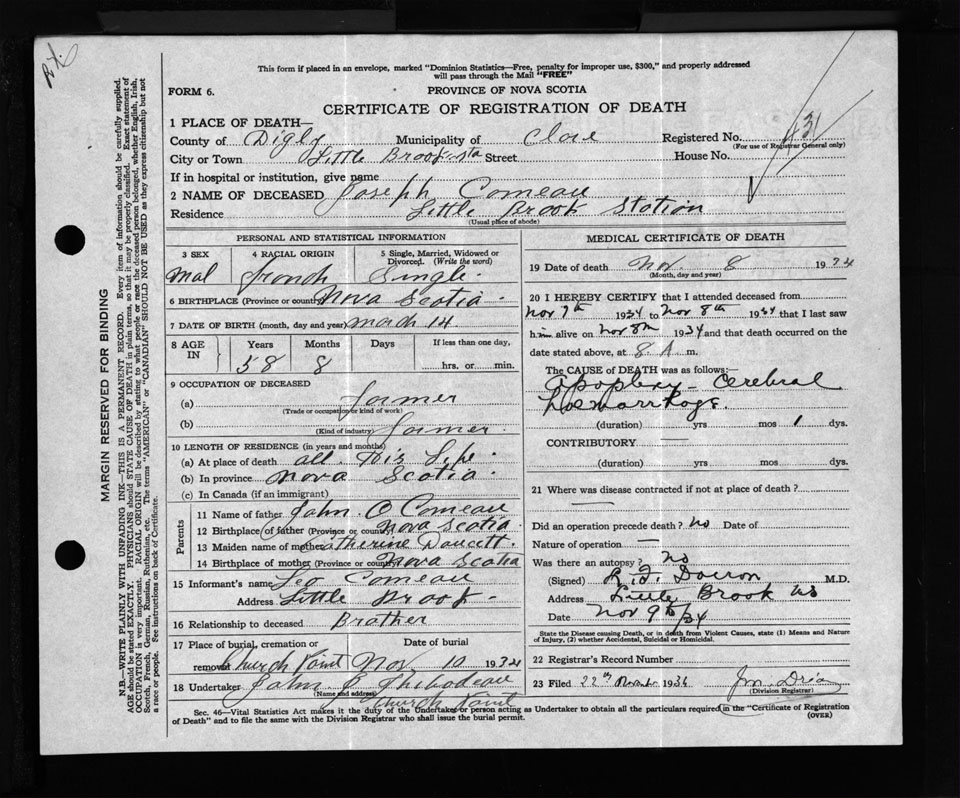 This form if placed in an envelope, marked "Dominion Statistics—Free, penalty for improper use, $300," and properly addressed
will pass through the Mail "FREE"
FORM 6.
PROVINCE OF NOVA SCOTIA
CERTIFICATE OF REGISTRATION OF DEATH
1 PLACE OF DEATH—
County of Digby Municipality of Clare Registered No.
(For use of Registrar General only)
City or Town Little Brook Sta Street House No.
If in hospital or institution, give name
2 NAME OF DECEASED Joseph Comeau
Residence Little Brook Station
(Usual place of abode)
PERSONAL AND STATISTICAL INFORMATION
3 SEX 4 RACIAL ORIGIN 5 Single, Married, Widowed or
Divorced. (Write the word)
Mal French Single.
6 BIRTHPLACE (Province or country) Nova Scotia.
7 DATE OF BIRTH (month, day and year) March 14
8 AGE IN Years Months Days If less than one day,
58 8 hrs. or min.
9 OCCUPATION OF DECEASED
(a) farmer
(Trade or occupation or kind of work)
(b) farmer.
(Kind of industry)
10 LENGTH OF RESIDENCE (in years and months)
(a) At place of death all. His Life
(b) In province Nova Scotia.
(c) In Canada (if an immigrant)
Parents
11 Name of father John O Comeau
12 Birthplace of father (Province or country) Nova Scotia.
13 Maiden name of mother Catherine Doucett.
14 Birthplace of mother (Province or country) Nova Scotia
15 Informant's name Leo Comeau
Address Little Brook -
16 Relationship to deceased Brother
17 Place of burial, cremation or Date of burial
removal Church Point Nov. 10 1934
18 Undertaker John E Thibodeau
(Name and address)
Church Point
MEDICAL CERTIFICATE OF DEATH
19 Date of death Nov. 8 1934
(Month, day and year)
20 I HEREBY CERTIFY that I attended deceased from
Nov 7th 1934 to Nov 8th 1934 that I last saw
him alive on Nov 8th 1934 and that death occurred on the
date stated above, at 8 A m.
The CAUSE of DEATH was as follows:—
Apoplexy - Cerebral
Hoemorrhage.
(duration) yrs mos 1 dys.
CONTRIBUTORY —
(duration) yrs. mos dys.
21 Where was disease contracted if not at place of death?
—
Did an operation precede death? no Date of
Nature of operation —
Was there an autopsy? No
(Signed) M.D.
Address Little Brook NS
Date Nov 9th/34
State the Disease causing Death, or in death from Violent Causes, state (1) Means and Nature
of Injury, (2) whether Accidental, Suicidal or Homicidal.
22 Registrar's Record Number
23 Filed 22nd November 1934
(Division Registrar)
Sec. 46—Vital Statistics Act makes it the duty of the Undertaker or person acting as Undertaker to obtain all the particulars required in the "Certificate of Registration
of Death" and to file the same with the Division Registrar who shall issue the burial permit. (OVER)
MARGIN RESERVED FOR BINDING
N.B.—WRITE PLAINLY WITH UNFADING INK—THIS IS A PERMANENT RECORD. Every item of information should be carefully supplied.
AGE should be stated EXACTLY. PHYSICIANS should STATE CAUSE OF DEATH in plain terms, so that it may be properly classified. Exact statement of
OCCUPATION is very important. RACIAL ORIGIN will be described by stating to what people or race the deceased person belonged, whether English, Irish,
Scotch, French, German, Russian, Ruthenian, etc. The terms "AMERICAN" or "CANADIAN" SHOULD NOT BE USED as they express citizenship but not
a race or people. See instructions on back of Certificate.